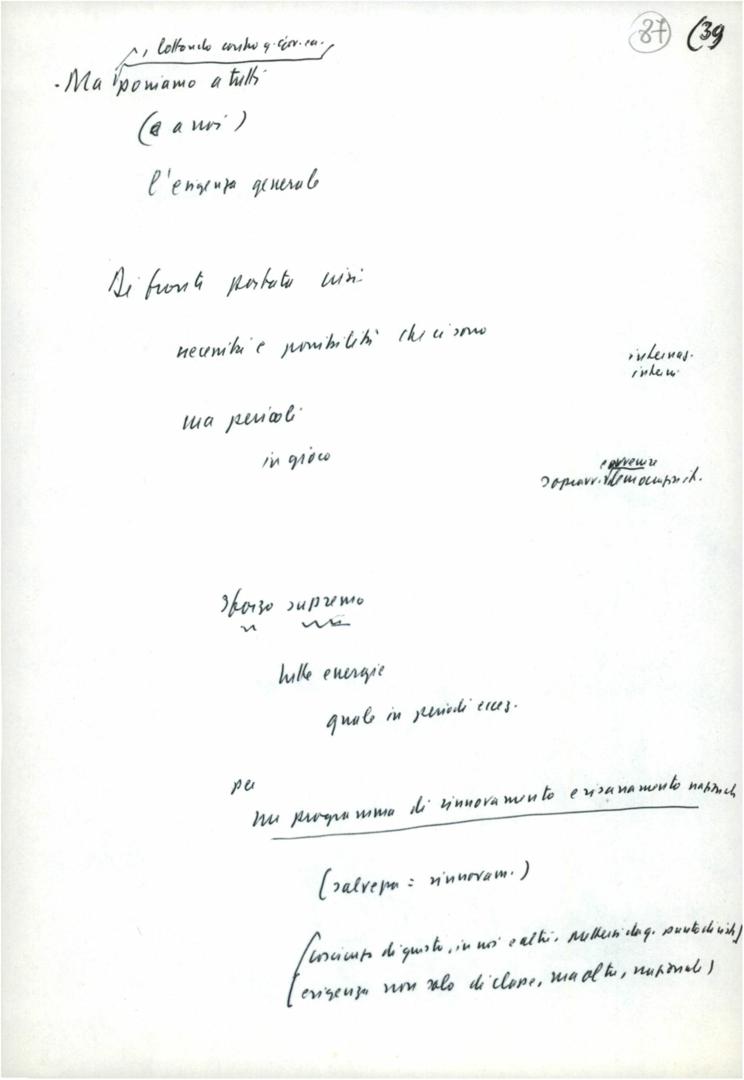 87 (39
, lottando contro q. gov. ecc.
- Ma poniamo a tutti
(e a noi)
l'esigenza generale
Di fronte portata crisi
necessità e possibilità che ci sono
internaz.
interni
ma pericoli
in gioco
sopravv. democrazia it.
Sforzo supremo
tutte energie
quale in periodi ecces.
per
un programma di rinnovamento e risanamento nazionale
(salvezza = rinnovam.)
(coscienza di questo, in noi e altri. Mettersi da q. punto di vista)
(esigenza non solo di classe, ma oltre, nazionale)